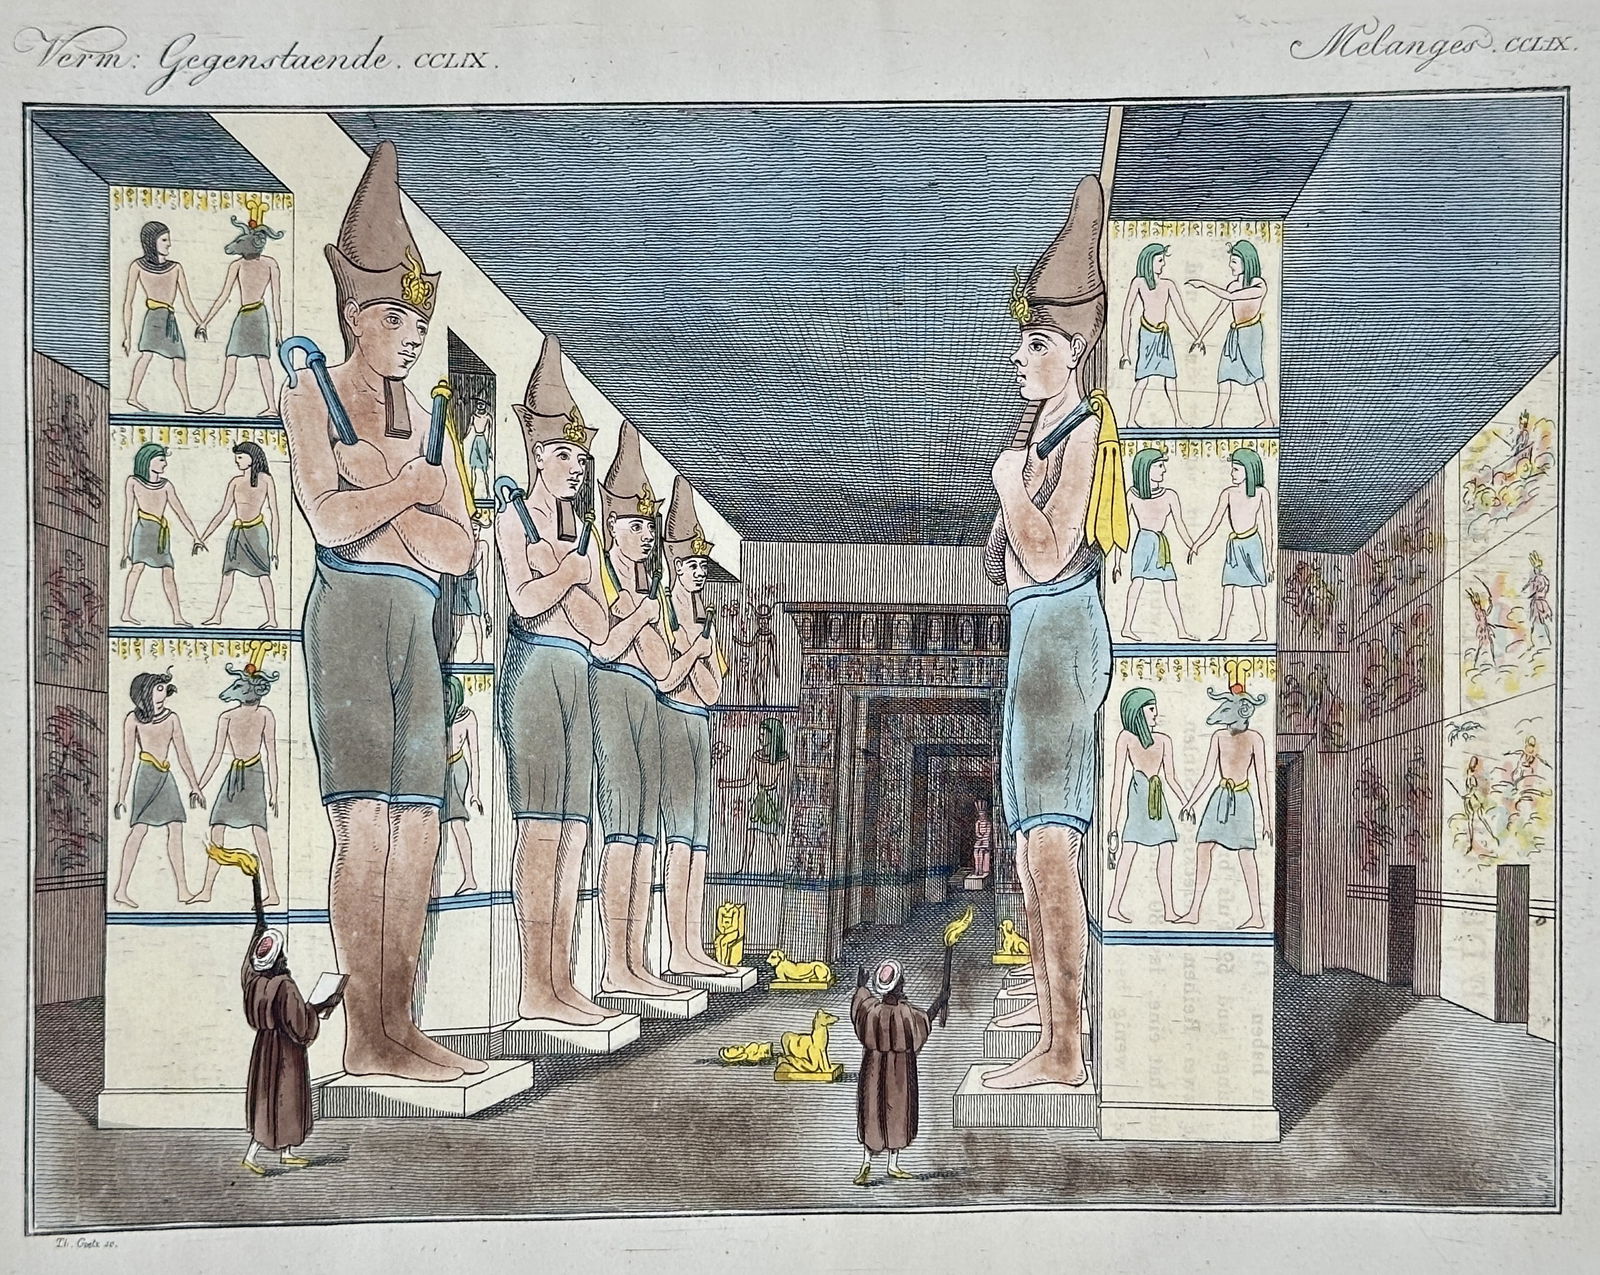 Verm: Gegenstaende. CCLIX.
Melanges. CCLIX.
Th. Goetz sc.